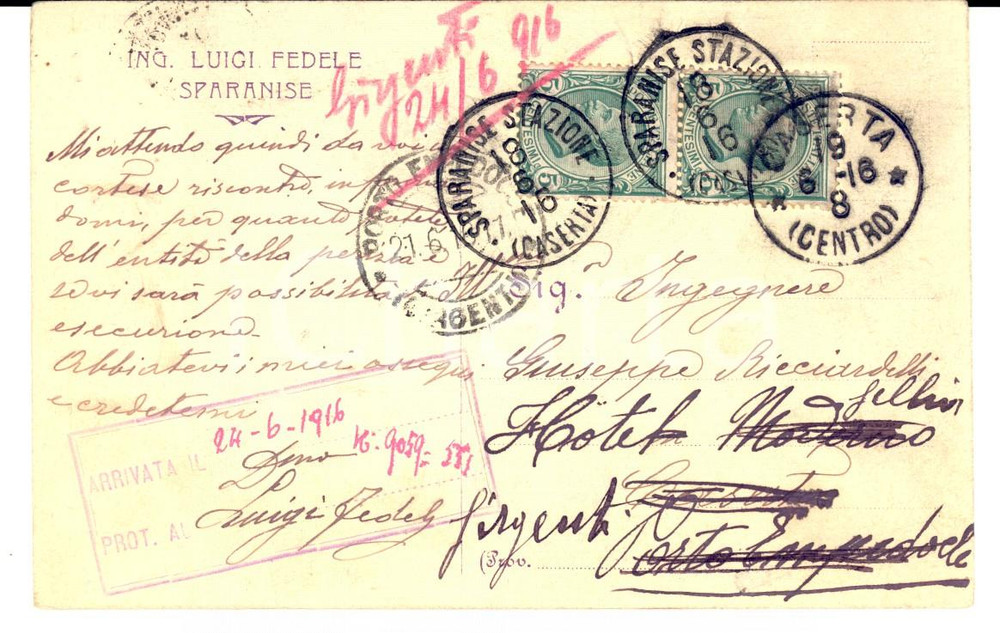 ING. LUIGI FEDELE
SPARANISE
Girgenti
24/6 916
Mi attendo quindi da voi
cortese riscontro,
domi, per quanto potete
dell'entità della perizia e
se vi sarà possibilità
esecuzione.
Abbiatevi i miei ossequi
e credetemi
Dmo
Luigi Fedele
ARRIVATA IL 24-6-1916
PROT. AL N. 9059 = 551
SPARANISE STAZIONE
18 6 16
(CASERTA)
SPARANISE STAZIONE
18 6 16
(CASERTA)
CASERTA
(CENTRO)
PORTO EMPEDOCLE
21.6.16
(GIRGENTI)
CENTESIMI 5
CENTESIMI 5
Ill Sig. Ingegnere
Giuseppe Ricciardelli
Hôtel Moderno
Gellia
Caserta
Girgenti
Porto Empedocle
(Prov.